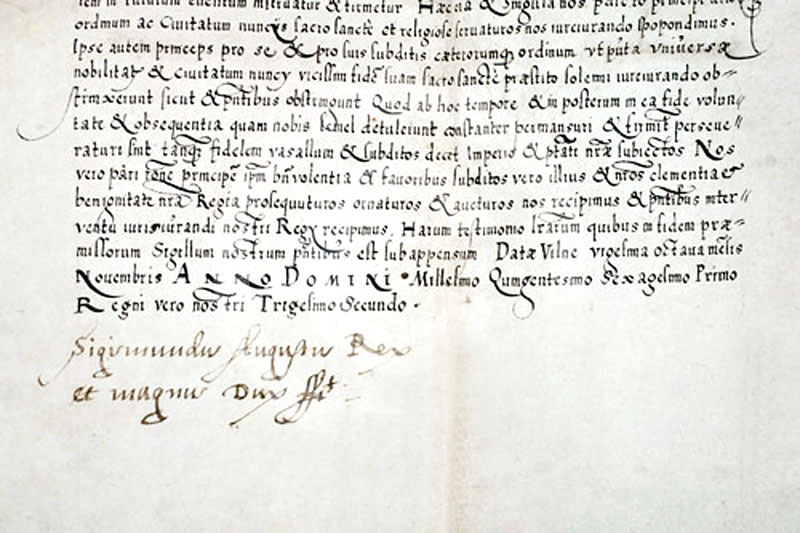 eventum mittuatur & firmetur Hæc oĩa & singula nos
ordinum ac Civitatum nuncijs sacrosancte et religiose servaturos nos iureiurando spopondimus.
Ipse autem princeps pro se & pro suis subditis cæterorumq̃ ordinum utputa universæ
nobilitatis & Civitatum nuncij vicissim fidẽ suam sacrosancte præstito solemni iureiurando ob=
strinxerunt sicut & p̃ntibus obstringunt Quod ab hoc tempore & in posterum in ea fide volun//
tate & obsequentia quam nobis semel detulerunt constanter permansuri & firmiť perseve//
raturi sint tanq̃ fidelem vasallum & subditos decet Imperio & ptãti nr̃æ subiectos Nos
vero pari r̃one principẽ ip̃m bñvolentia & favoribus subditos vero illius & nr̃os clementia &
benignitate nr̃a Regia prosequuturos ornaturos & aucturos nos recipimus & p̃ntibus inter//
ventu iurisiurandi nostri Regij recipimus. Harum testimonio l̃rarum quibus in fidem præ=
missorum Sigillum nostrum p̃ntibus est subappensum Datæ Vilne vigesima octava mensis
Novembris ANNO DOMINI Millesimo Quingentesimo Sexagesimo Primo
Regni vero nostri Trigesimo Secundo.
Sigismundus Augustus Rex
et magnus Dux sst